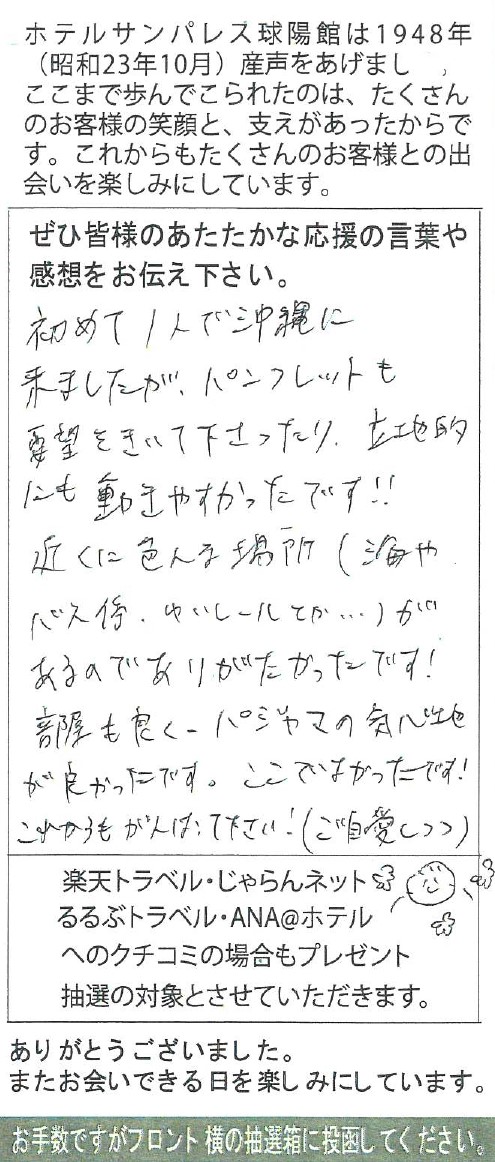 ホテルサンパレス球陽館は1948年
（昭和23年10月）産声をあげまし 、
ここまで歩んでこられたのは、たくさん
のお客様の笑顔と、支えがあったからで
す。これからもたくさんのお客様との出
会いを楽しみにしています。
ぜひ皆様のあたたかな応援の言葉や
感想をお伝え下さい。
初めて1人で沖縄に
来ましたが、パンフレットも
要望をきいて下さったり、立地的
にも動きやすかったです!!
近くに色んな場所(海や
バス停、ゆいレールとか…)が
あるのでありがたかったです!
部屋も良くーパジャマの気心地
が良かったです。ここでよかったです!
これからもがんばって下さい!(ご自愛しつつ)
楽天トラベル・じゃらんネット
るるぶトラベル・ANA@ホテル
へのクチコミの場合もプレゼント
抽選の対象とさせていただきます。
ありがとうございました。
またお会いできる日を楽しみにしています。
お手数ですがフロント横の抽選箱に投函してください。